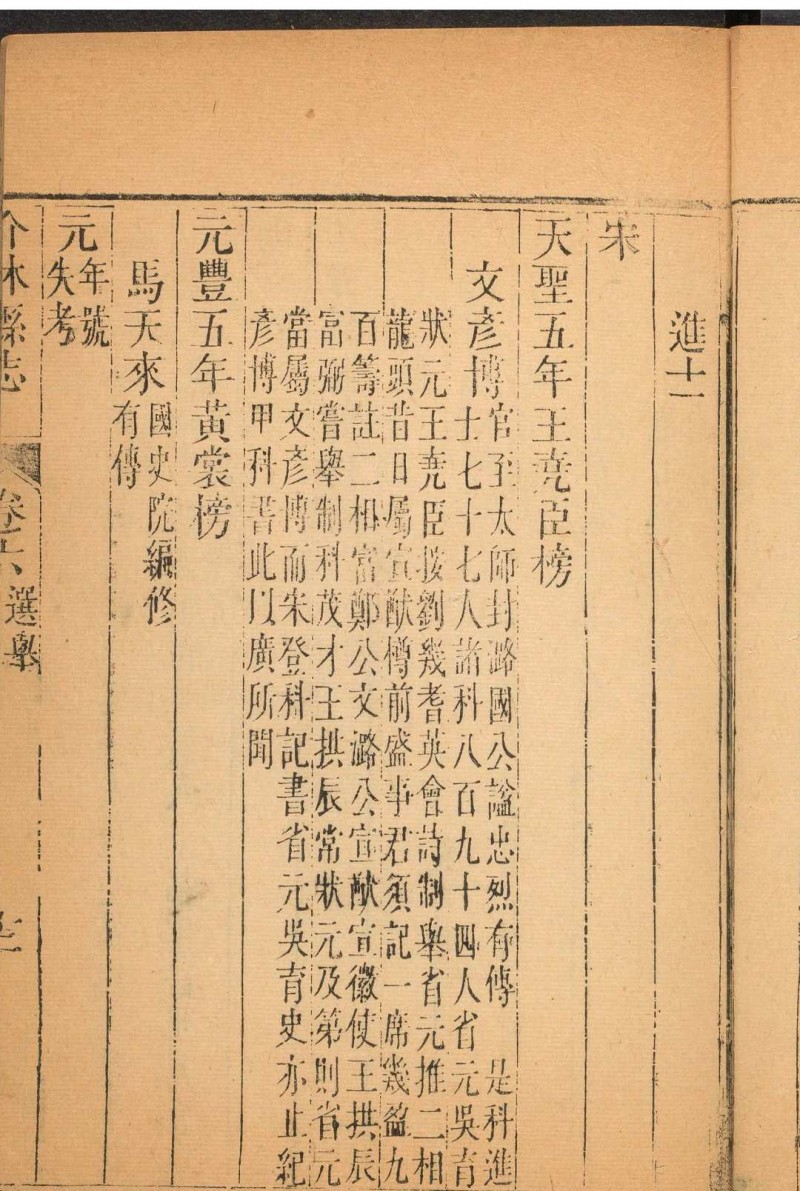 進士
宋
天聖五年王堯臣榜
文彥博
官至太師封潞國公諡忠烈有傳 是科進
士七十七人諸科八百九十四人省元吳育
狀元王堯臣按劉幾耆英會詩制舉省元推二相
龍頭昔日屬宣猷樽前盛事君須記一席幾盈九
百籌註二相富鄭公文潞公宣猷宣徽使王拱辰
富弼嘗舉制科茂才王拱辰常狀元及第則省元
當屬文彥博而宋登科記書省元吳育史亦止紀
彥博甲科書此以廣所聞
元豐五年黃裳榜
馬天來
國史院編修
有傳
元
年號
失考
介休縣志
卷六 選舉